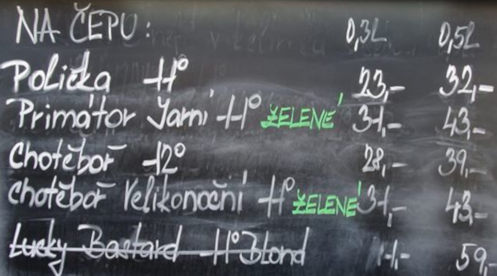 NA ČEPU: 0,3L 0,5L
Polička 11° 23,- 32,-
Primátor Jarní 11° ZELENÉ 31,- 43,-
Chotěboř 12° 28,- 39,-
Chotěboř Velikonoční 11° ZELENÉ 31,- 43,-
Lucky Bastard 11° Blond 59,-